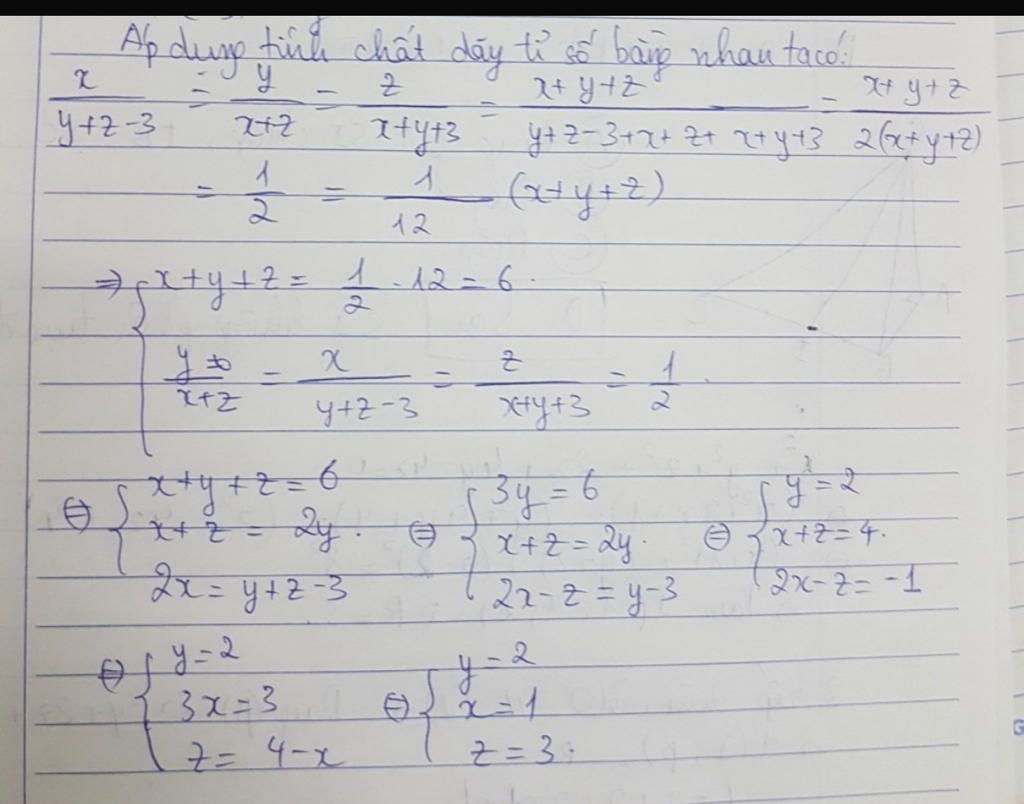 Áp dụng tính chất dãy tỉ số bằng nhau ta có:
x/(y+z-3) = y/(x+z) = z/(x+y+3) = (x+y+z)/(y+z-3+x+z+x+y+3) = (x+y+z)/(2(x+y+z))
= 1/2 = 1/12 (x+y+z)
⇒ { x+y+z = 1/2 . 12 = 6.
y/(x+z) = x/(y+z-3) = z/(x+y+3) = 1/2.
⇔ { x+y+z = 6 ⇔ { 3y = 6 ⇔ { y = 2
x+z = 2y. x+z = 2y. x+z = 4.
2x = y+z-3 2x-z = y-3 2x-z = -1
⇔ { y = 2 ⇔ { y = 2
3x = 3 x = 1
z = 4-x z = 3.